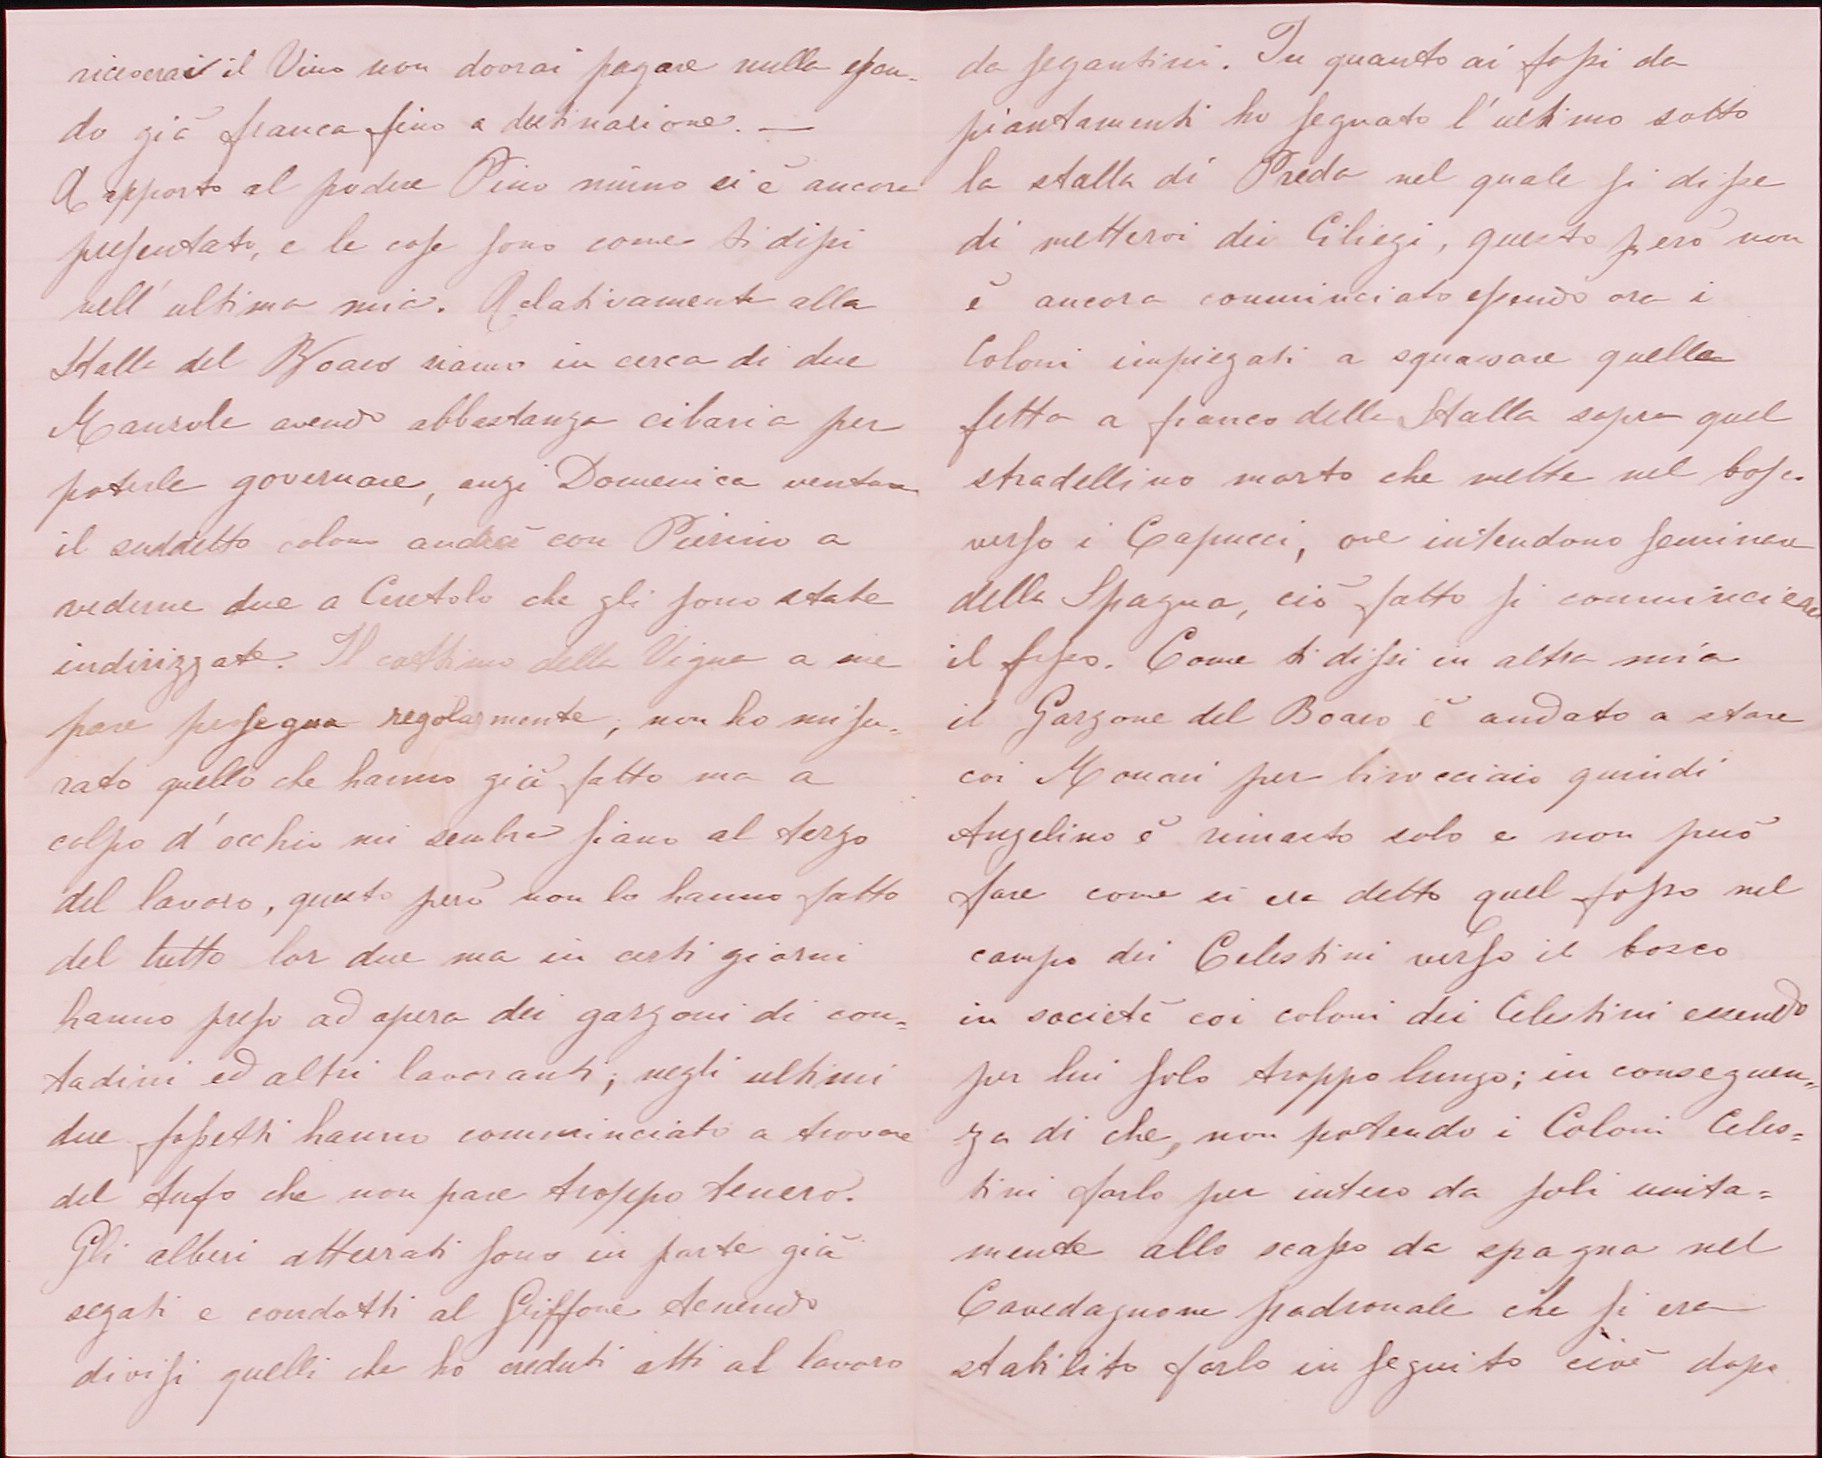 riceverai il Vino non dovrai pagare nulla essen-
do già franca fino a destinazione. —
Rapporto al podere Pino niuno si è ancora
presentato, e le cose sono come ti dissi
nell'ultima mia. Relativamente alla
Stalla del Boaro siamo in cerca di due
Manzole avendo abbastanza cibaria per
poterle governare, anzi Domenica ventura
il suddetto colono andrà con Pierino a
vederne due a Ceretolo che gli sono state
indirizzate. Il cottimo della Vigna a me
pare persegua regolarmente, non ho misu-
rato quello che hanno già fatto ma a
colpo d'occhio mi sembra siano al terzo
del lavoro, questo però non lo hanno fatto
del tutto lor due ma in certi giorni
hanno preso ad opera dei garzoni di con=
tadini ed altri lavoranti; negli ultimi
due fossetti hanno comminciato a trovare
del tufo che non pare troppo tenero.
Gli alberi atterrati sono in parte già
segati e condotti al Griffone tenendo
divisi quelli che ho creduti atti al lavoro
da segantini. In quanto ai fossi da
piantamenti ho segnato l'ultimo sotto
la stalla di Preda nel quale si disse
di mettervi dei Ciliegi, questo però non
è ancora comminciato essendo ora i
Coloni impiegati a squassare quella
fetta a fianco della Stalla sopra quel
stradellino morto che mette nel bosco
verso i Capucci, ove intendono seminare
della Spagna, ciò fatto si comminciera
il fosso. Come ti dissi in altra mia
il Garzone del Boaro è andato a stare
coi Monari per birocciaio quindi
Angelino è rimasto solo e non può
fare come si era detto quel fosso nel
campo dei Celestini verso il bosco
in società coi coloni dei Celestini essendo
per lui solo troppo lungo; in conseguen=
za di che, non potendo i Coloni Celes=
tini farlo per intero da soli unita=
mente allo scasso da spagna nel
Cavedagnone padronale che si era
stabilito farlo in seguito cioè dopo